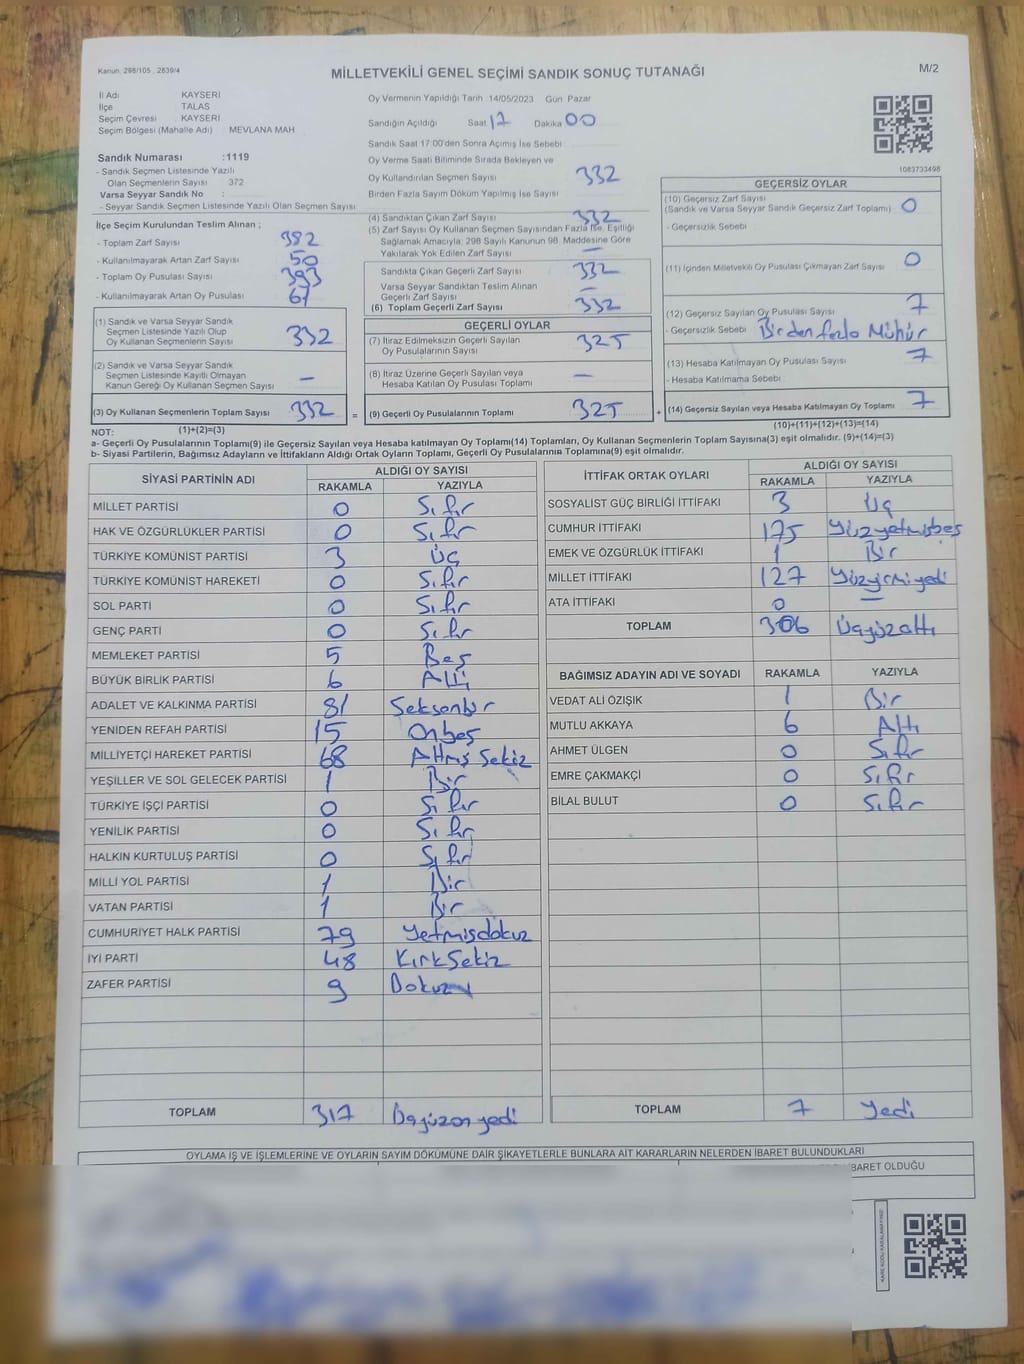 Kanun: 298/105 , 2839/4
MİLLETVEKİLİ GENEL SEÇİMİ SANDIK SONUÇ TUTANAĞI
M/2
İl Adı KAYSERİ
İlçe TALAS
Seçim Çevresi : KAYSERİ
Seçim Bölgesi (Mahalle Adı) MEVLANA MAH
Oy Vermenin Yapıldığı Tarih :14/05/2023 Gün Pazar
Sandığın Açıldığı Saat 17 Dakika 00
Sandık Saat 17:00'den Sonra Açımış İse Sebebi
Oy Verme Saati Bitiminde Sırada Bekleyen ve
Oy Kullandırılan Seçmen Sayısı 332
Birden Fazla Sayım Döküm Yapılmış İse Sayısı
1083733498
Sandık Numarası :1119
- Sandık Seçmen Listesinde Yazılı
Olan Seçmenlerin Sayısı 372
Varsa Seyyar Sandık No :
- Seyyar Sandık Seçmen Listesinde Yazılı Olan Seçmen Sayısı
İlçe Seçim Kurulundan Teslim Alınan ;
- Toplam Zarf Sayısı 382
- Kullanılmayarak Artan Zarf Sayısı 50
- Toplam Oy Pusulası Sayısı 393
- Kullanılmayarak Artan Oy Pusulası 61
(1) Sandık ve Varsa Seyyar Sandık
Seçmen Listesinde Yazılı Olup
Oy Kullanan Seçmenlerin Sayısı 332
(2) Sandık ve Varsa Seyyar Sandık
Seçmen Listesinde Kayıtlı Olmayan
Kanun Gereği Oy Kullanan Seçmen Sayısı –
(3) Oy Kullanan Seçmenlerin Toplam Sayısı 332 =
(1)+(2)=(3)
(4) Sandıktan Çıkan Zarf Sayısı 332
(5) Zarf Sayısı Oy Kullanan Seçmen Sayısından Fazla İse, Eşitliği
Sağlamak Amacıyla; 298 Sayılı Kanunun 98. Maddesine Göre
Yakılarak Yok Edilen Zarf Sayısı –
Sandıkta Çıkan Geçerli Zarf Sayısı 332
Varsa Seyyar Sandıktan Teslim Alınan
Geçerli Zarf Sayısı –
(6) Toplam Geçerli Zarf Sayısı 332
GEÇERLİ OYLAR
(7) İtiraz Edilmeksizin Geçerli Sayılan
Oy Pusulalarının Sayısı 325
(8) İtiraz Üzerine Geçerli Sayılan veya
Hesaba Katılan Oy Pusulası Toplamı –
(9) Geçerli Oy Pusulalarının Toplamı 325 +
GEÇERSİZ OYLAR
(10) Geçersiz Zarf Sayısı
(Sandık ve Varsa Seyyar Sandık Geçersiz Zarf Toplamı) 0
- Geçersizlik Sebebi
(11) İçinden Milletvekili Oy Pusulası Çıkmayan Zarf Sayısı 0
(12) Geçersiz Sayılan Oy Pusulası Sayısı 7
- Geçersizlik Sebebi Birden fazla Mühür
(13) Hesaba Katılmayan Oy Pusulası Sayısı 7
- Hesaba Katılmama Sebebi
(14) Geçersiz Sayılan veya Hesaba Katılmayan Oy Toplamı 7
(10)+(11)+(12)+(13)=(14)
NOT:
a- Geçerli Oy Pusulalarının Toplamı(9) ile Geçersiz Sayılan veya Hesaba katılmayan Oy Toplamı(14) Toplamları, Oy Kullanan Seçmenlerin Toplam Sayısına(3) eşit olmalıdır. (9)+(14)=(3)
b- Siyasi Partilerin, Bağımsız Adayların ve İttifakların Aldığı Ortak Oyların Toplamı, Geçerli Oy Pusulalarının Toplamına(9) eşit olmalıdır.
SİYASİ PARTİNİN ADI ALDIĞI OY SAYISI
RAKAMLA YAZIYLA
MİLLET PARTİSİ 0 Sıfır
HAK VE ÖZGÜRLÜKLER PARTİSİ 0 Sıfır
TÜRKİYE KOMÜNİST PARTİSİ 3 Üç
TÜRKİYE KOMÜNİST HAREKETİ 0 Sıfır
SOL PARTİ 0 Sıfır
GENÇ PARTİ 0 Sıfır
MEMLEKET PARTİSİ 5 Beş
BÜYÜK BİRLİK PARTİSİ 6 Altı
ADALET VE KALKINMA PARTİSİ 81 Seksenbir
YENİDEN REFAH PARTİSİ 15 Onbeş
MİLLİYETÇİ HAREKET PARTİSİ 68 Altmış Sekiz
YEŞİLLER VE SOL GELECEK PARTİSİ 1 Bir
TÜRKİYE İŞÇİ PARTİSİ 0 Sıfır
YENİLİK PARTİSİ 0 Sıfır
HALKIN KURTULUŞ PARTİSİ 0 Sıfır
MİLLİ YOL PARTİSİ 1 Bir
VATAN PARTİSİ 1 Bir
CUMHURİYET HALK PARTİSİ 79 Yetmişdokuz
İYİ PARTİ 48 Kırk Sekiz
ZAFER PARTİSİ 9 Dokuz
TOPLAM 317 Üçyüzon yedi
İTTİFAK ORTAK OYLARI ALDIĞI OY SAYISI
RAKAMLA YAZIYLA
SOSYALİST GÜÇ BİRLİĞİ İTTİFAKI 3 Üç
CUMHUR İTTİFAKI 175 Yüzyetmişbeş
EMEK VE ÖZGÜRLÜK İTTİFAKI 1 Bir
MİLLET İTTİFAKI 127 Yüzyirmiyedi
ATA İTTİFAKI 0 –
TOPLAM 306 Üçyüzaltı
BAĞIMSIZ ADAYIN ADI VE SOYADI RAKAMLA YAZIYLA
VEDAT ALİ ÖZIŞIK 1 Bir
MUTLU AKKAYA 6 Altı
AHMET ÜLGEN 0 Sıfır
EMRE ÇAKMAKÇİ 0 Sıfır
BİLAL BULUT 0 Sıfır
TOPLAM 7 Yedi
OYLAMA İŞ VE İŞLEMLERİNE VE OYLARIN SAYIM DÖKÜMÜNE DAİR ŞİKAYETLERLE BUNLARA AİT KARARLARIN NELERDEN İBARET BULUNDUKLARI
İBARET OLDUĞU
KARE KODU KARALAMAYINIZ